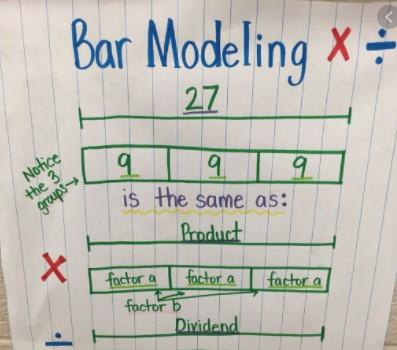 Bar Modeling × ÷
27
9 9 9
Notice
the 3
groups→
is the same as:
Product
×
factor a factor a factor a
factor b
÷
Dividend